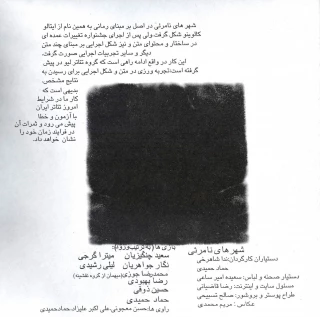 شهر های نامرئی در اصل بر مبنای رمانی به همین نام از ایتالو
کالوینو شکل گرفت ولی پس از اجرای جشنواره تغییرات عمده ای
در ساختار و محتوای متن و نیز شکل اجرایی بر مبنای چند متن
دیگر و سایر تجربیات اجرایی صورت گرفت.
این کار در واقع ادامه راهی است که گروه تئاتر لیو در پیش
گرفته است،تجربه ورزی در متن و شکل اجرایی برای رسیدن به
نتایج مشخص.
بدیهی است که
کار ما در شرایط
امروز تئاتر ایران
با آزمون و خطا
پیش می رود و ثمرات آن
در فرایند زمان خود را
نشان خواهد داد.
بازی ها (به ترتیب ورود):
سعید چنگیزیان میترا گرجی
نگار جواهریان لیلی رشیدی
محمدرضا جوزی
رضا بهبودی
حسین ذوقی
حماد حمیدی
راوی ها:حسن معجونی،علی اکبر علیزاد،حمادحمیدی
شهر های نامرئی
دستیاران کارگردان:ندا شاهرخی
حماد حمیدی
دستیار صحنه و لباس: سعیده امیر ساعی
مسئول سایت و اینترنت: رضا قاضیانی
طراح پوستر و بروشور: صالح تسبیحی
عکاس : مریم محمدی